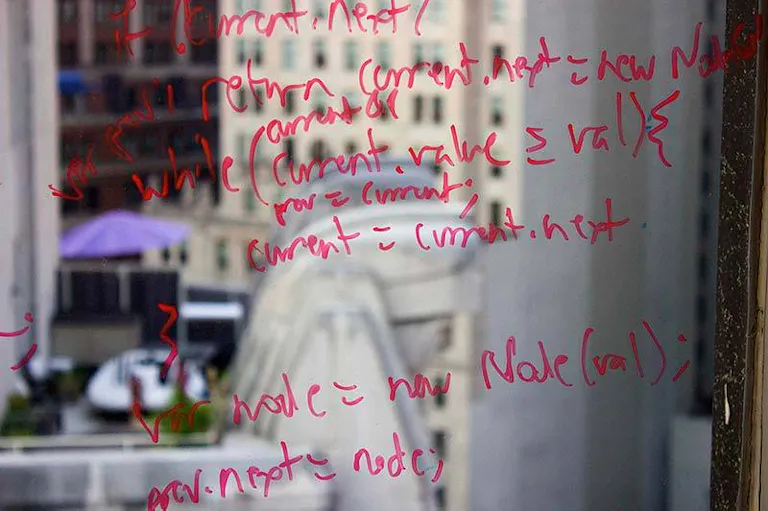 if (current.next)
return current.next = new Node(
var prev;
current &&
while (current.value ≤ val) {
prev = current;
current = current.next
}
var node = new Node(val);
prev.next = node;